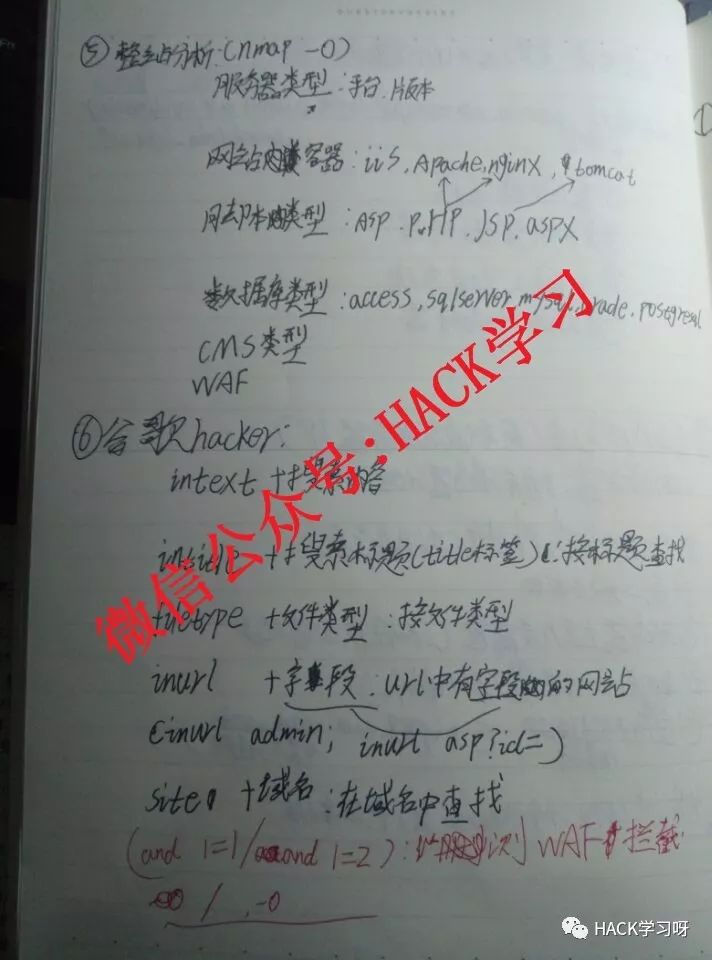 ⑤ 整站分析:(nmap -O)
服务器类型:平台.版本
网站容器:iis,Apache,nginx,tomcat
脚本类型:Asp.PHP.Jsp.aspx
数据库类型:access,sqlserver,mysql,oracle,postgresql
CMS类型
WAF
⑥谷歌hacker:
intext +搜索内容
intitle +搜索标题(title标签):按标题查找
filetype +文件类型:按文件类型
inurl +字段:url中有字段的网站
(inurl admin; inurl asp?id=)
site: +域名:在域名中查找
(and 1=1/and 1=2):测WAF拦截
/ ,-0
微信公众号:HACK学习
HACK学习呀